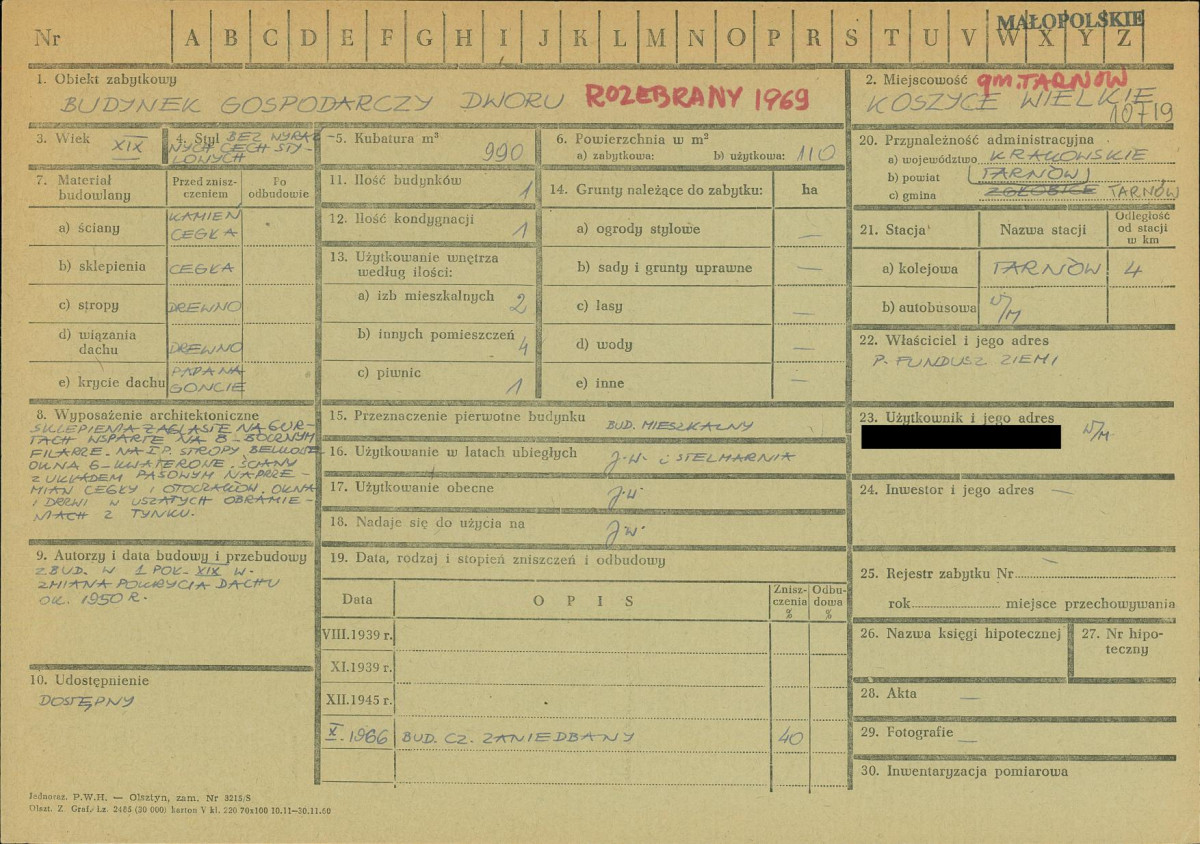 MAŁOPOLSKIE
Nr A B C D E F G H I J K L M N O P R S T U V W X Y Z
1. Obiekt zabytkowy
BUDYNEK GOSPODARCZY DWORU ROZEBRANY 1969
2. Miejscowość gm. TARNÓW
KOSZYCE WIELKIE
10719
3. Wiek XIX
4. Styl BEZ WYRAŹ
NYCH CECH STY-
LOWYCH
5. Kubatura m³
990
6. Powierzchnia w m²
a) zabytkowa: b) użytkowa: 110
7. Materiał
budowlany
Przed znisz-
czeniem
Po
odbudowie
a) ściany
KAMIEŃ
CEGŁA
b) sklepienia CEGŁA
c) stropy DREWNO
d) wiązania
dachu DREWNO
e) krycie dachu PAPA NA
GONCIE
8. Wyposażenie architektoniczne
SKLEPIENIA ŻAGLASTE NA GUR-
TACH WSPARTE NA 8-BOCZNYM
FILARZE. NA I P. STROPY BELKOWE
OKNA 6-KWATEROWE. ŚCIANY
Z UKŁADEM PASOWYM NAPRZE-
MIAN CEGŁY I OTOCZAKÓW. OKNA
I DRZWI W USZATYCH OBRAMIE-
NIACH Z TYNKU.
9. Autorzy i data budowy i przebudowy
ZBUD. W 1 POŁ. XIX W.
ZMIANA POKRYCIA DACHU
OK. 1950 R.
10. Udostępnienie
DOSTĘPNY
11. Ilość budynków 1
12. Ilość kondygnacji 1
13. Użytkowanie wnętrza
według ilości:
a) izb mieszkalnych 2
b) innych pomieszczeń 4
c) piwnic 1
14. Grunty należące do zabytku: ha
a) ogrody stylowe —
b) sady i grunty uprawne —
c) lasy —
d) wody —
e) inne —
15. Przeznaczenie pierwotne budynku BUD. MIESZKALNY
16. Użytkowanie w latach ubiegłych J.W. i STELMARNIA
17. Użytkowanie obecne J.W.
18. Nadaje się do użycia na J.W.
19. Data, rodzaj i stopień zniszczeń i odbudowy
Data
O P I S
Znisz-
czenia
%
Odbu-
dowa
%
VIII.1939 r.
XI.1939 r.
XII.1945 r.
X.1966 BUD. CZ. ZANIEDBANY 40
20. Przynależność administracyjna
a) województwo KRAKOWSKIE
b) powiat (TARNÓW)
c) gmina ZGŁOBICE TARNÓW
21. Stacja
Nazwa stacji
Odległość
od stacji
w km
a) kolejowa TARNÓW 4
b) autobusowa W/M
22. Właściciel i jego adres
P. FUNDUSZ ZIEMI
23. Użytkownik i jego adres
W/M.
24. Inwestor i jego adres —
25. Rejestr zabytku Nr
rok miejsce przechowywania
26. Nazwa księgi hipotecznej
27. Nr hipo-
teczny
28. Akta —
29. Fotografie —
30. Inwentaryzacja pomiarowa
Jednoraz. P.W.H. — Olsztyn, zam. Nr 3215/S
Olszt. Z. Graf. i.z. 2465 (30 000) karton V kl. 220 70x100 10.11—30.11.60